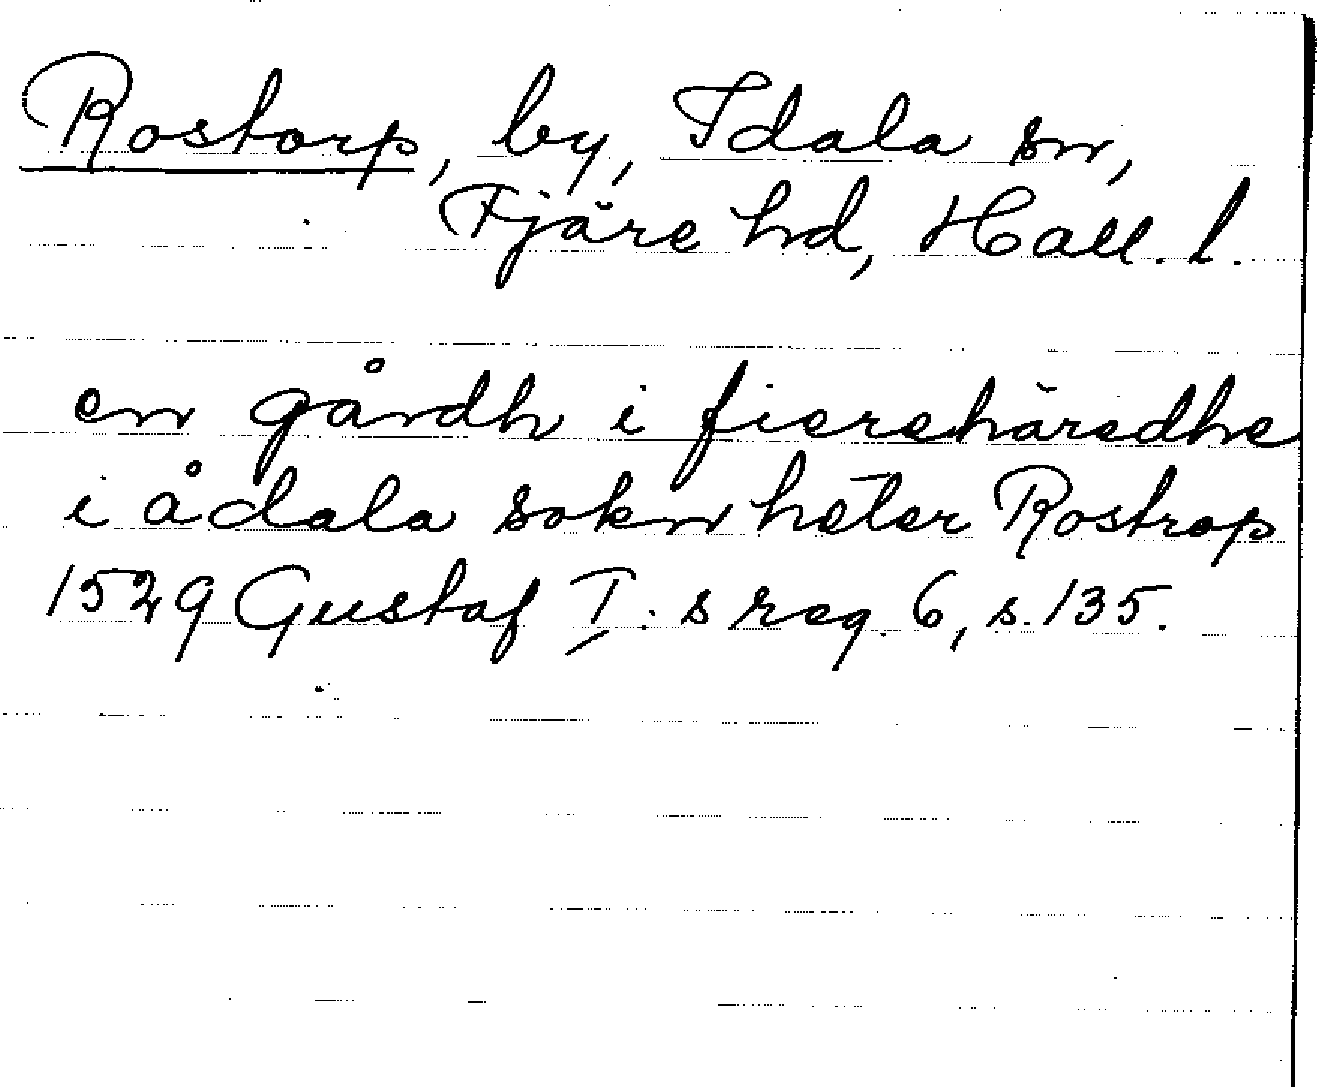 Rostorp, by, Idala sn,
Fjäre hd, Hall. l.
en gårdh i fierehäredhe
i ådala sokn heter Rostrop
1529 Gustaf I:s reg. 6, s. 135.